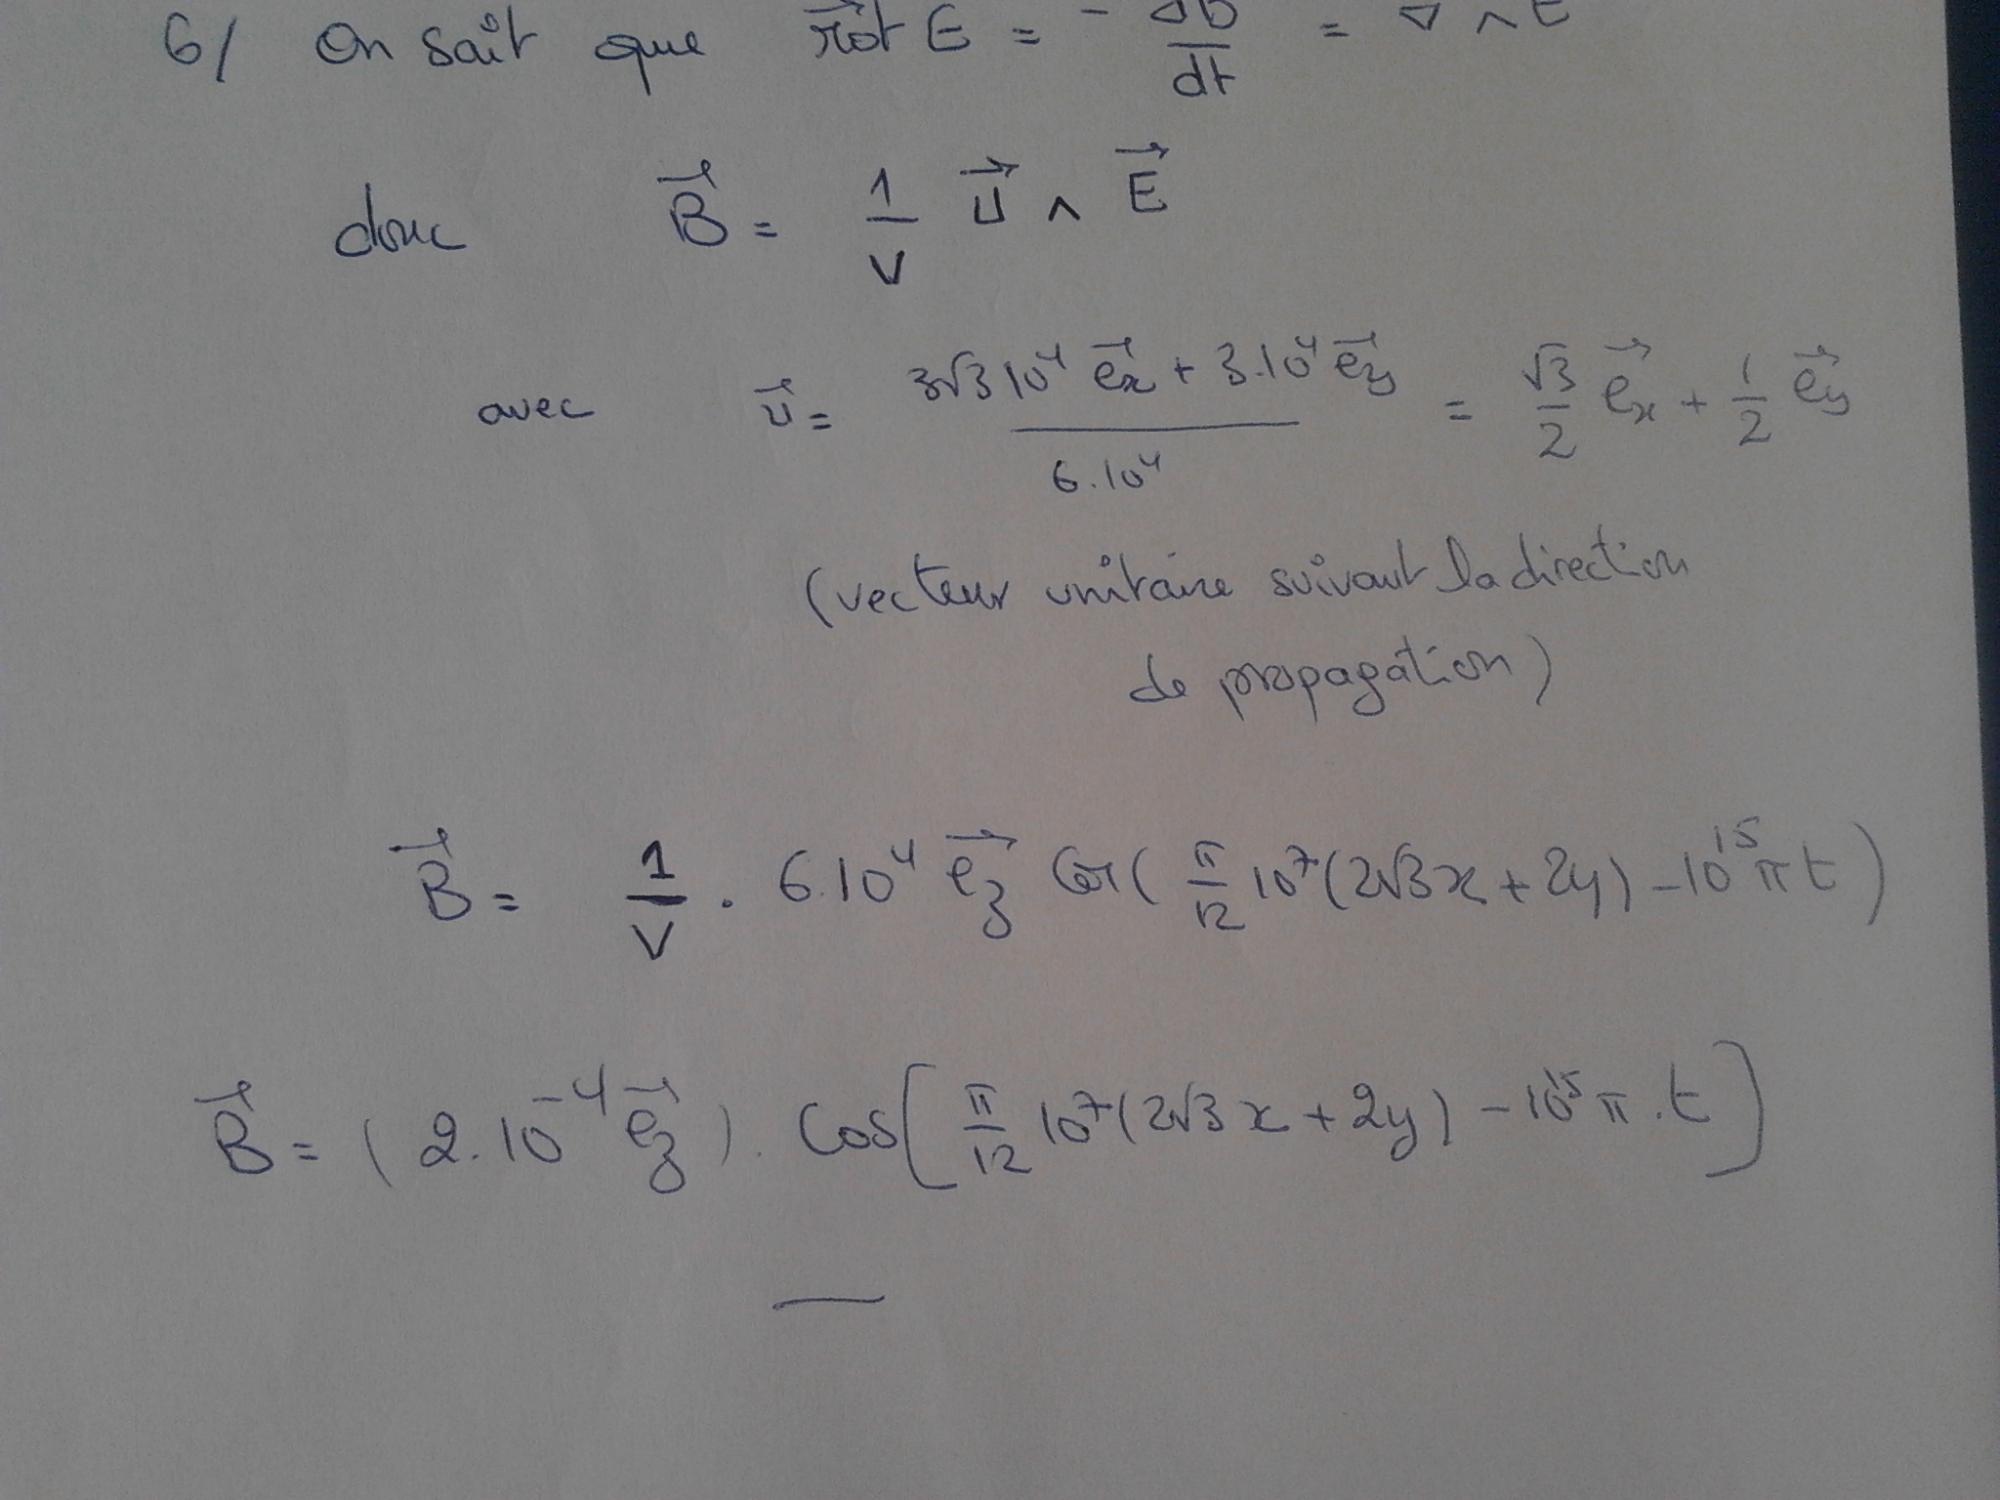 6/ On sait que rot E = - dB/dt = ∇ ∧ E
donc B⃗ = 1/V U⃗ ∧ E⃗
avec u⃗ = (3√3 10⁴ e⃗x + 3.10⁴ e⃗y)/(6.10⁴) = √3/2 e⃗x + 1/2 e⃗y
(vecteur unitaire suivant la direction
de propagation)
B⃗ = 1/V . 6.10⁴ e⃗z cos( π/12 10⁷(2√3x + 2y) - 10¹⁵πt)
B⃗ = (2.10⁻⁴ e⃗z). Cos[ π/12 10⁷(2√3x + 2y) - 10¹⁵π.t]